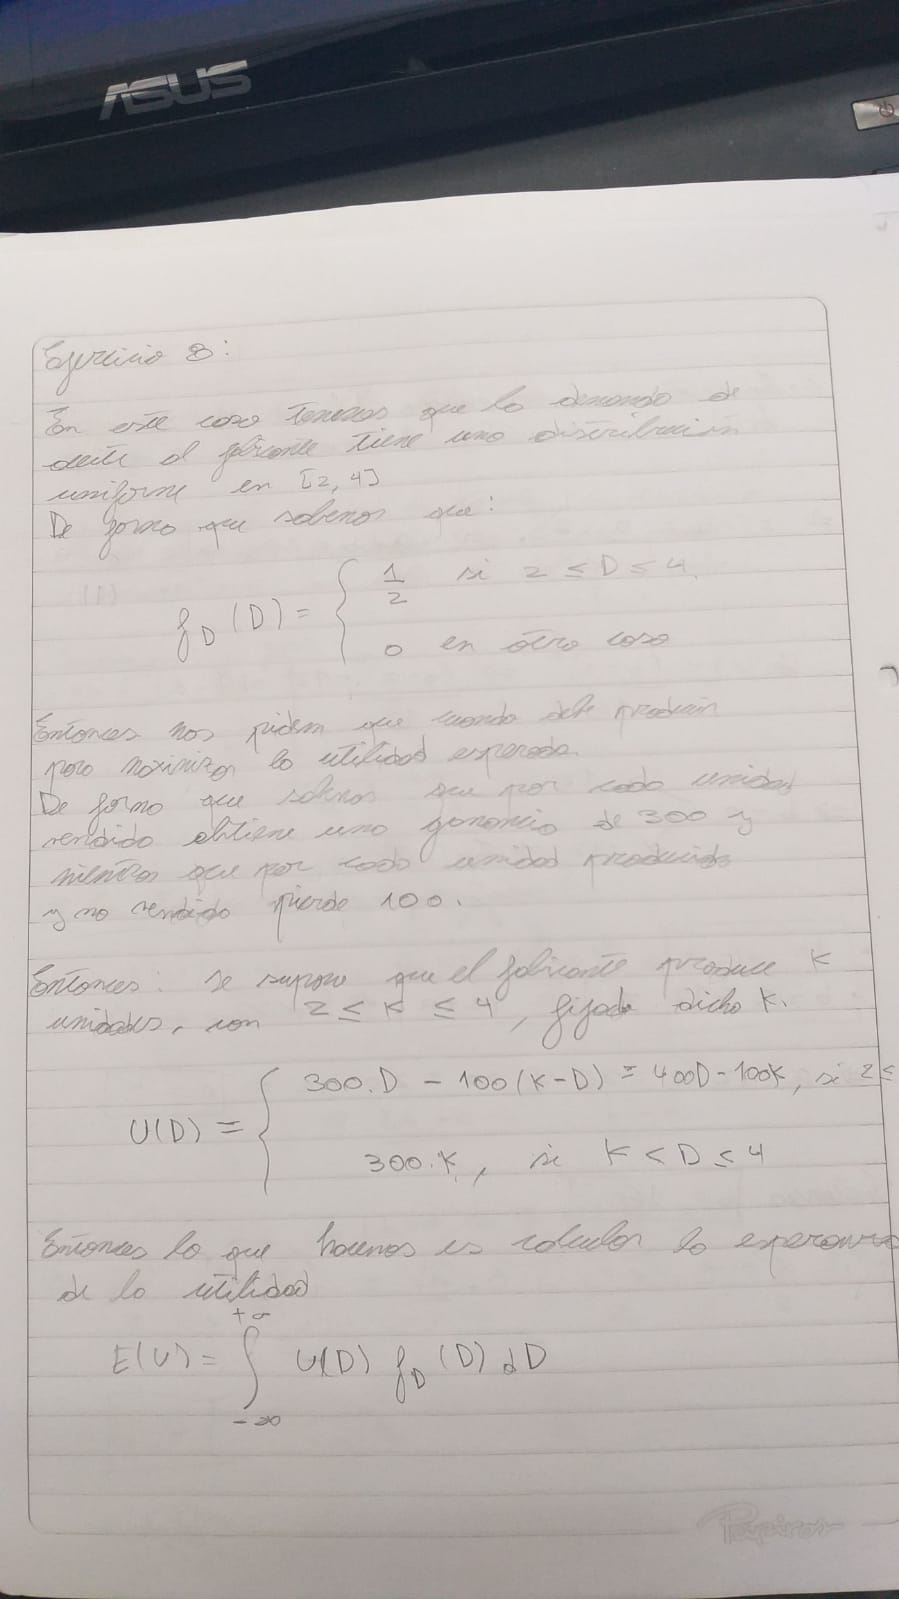 ASUS
Ejercicio 8:
En este caso tenemos que la demanda de
aceite al fabricante tiene una distribución
uniforme en [2,4]
De forma que sabemos que:
f_D(D) = { 1/2 si 2 ≤ D ≤ 4
0 en otro caso
Entonces nos piden que cuando debe producir
para maximizar la utilidad esperada.
De forma que sabemos que por cada unidad
vendida obtiene una ganancia de 300 y
mientras que por cada unidad producida
y no vendida pierde 100.
Entonces: se supone que el fabricante produce K
unidades, con 2 ≤ K ≤ 4, fijado dicho K.
U(D) = { 300.D - 100(K-D) = 400D - 100K, si 2 ≤
300.K, si K < D ≤ 4
Entonces lo que hacemos es calcular la esperanza
de la utilidad
E(U) = ∫_{-∞}^{+∞} U(D) f_D(D) dD
Papiros